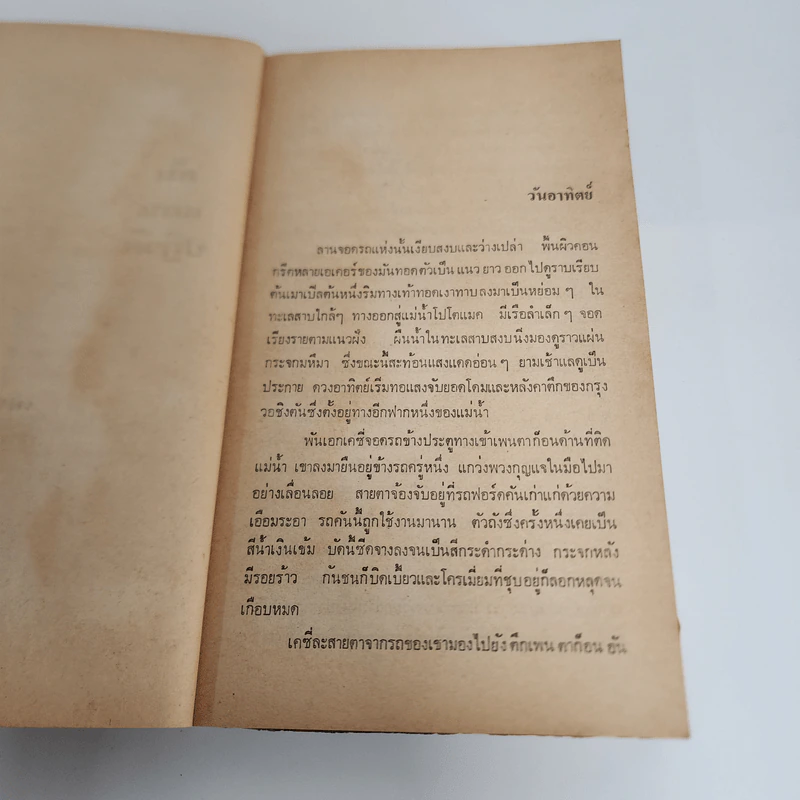 วันอาทิตย์
ลานจอดรถแห่งนั้นเงียบสงบและว่างเปล่า พื้นผิวคอน
กรีตหลายเอเคอร์ของมันทอดตัวเป็น แนว ยาว ออก ไปดูราบเรียบ
ต้นเมาเปิลต้นหนึ่งริมทางเท้าทอดเงาทาบลงมาเป็นหย่อม ๆ ใน
ทะเลสาบใกล้ๆ ทางออกสู่แม่น้ำโปโตแมค มีเรือลำเล็ก ๆ จอด
เรียงรายตามแนวฝั่ง ผืนน้ำในทะเลสาบสงบนิ่งมองดูราวแผ่น
กระจกมหึมา ซึ่งขณะนี้สะท้อนแสงแดดอ่อน ๆ ยามเช้าแลดูเป็น
ประกาย ดวงอาทิตย์เริ่มทอแสงจับยอดโดมและหลังคาตึกของกรุง
วอชิงตันซึ่งตั้งอยู่ทางอีกฟากหนึ่งของแม่น้ำ
พันเอกเคซี่จอดรถข้างประตูทางเข้าเพนตาก็อนด้านที่ติด
แม่น้ำ เขาลงมายืนอยู่ข้างรถครู่หนึ่ง แกว่งพวงกุญแจในมือไปมา
อย่างเลื่อนลอย สายตาจ้องจับอยู่ที่รถฟอร์ดคันเก่าแก่ด้วยความ
เอือมระอา รถคันนี้ถูกใช้งานมานาน ตัวถังซึ่งครั้งหนึ่งเคยเป็น
สีน้ำเงินเข้ม บัดนี้ซีดจางลงจนเป็นสีกระดำกระด่าง กระจกหลัง
มีรอยร้าว กันชนก็บิดเบี้ยวและโครเมี่ยมที่ชุบอยู่ก็ลอกหลุดจน
เกือบหมด
เคซี่ละสายตาจากรถของเขามองไปยัง ตึกเพน ตาก็อน อัน